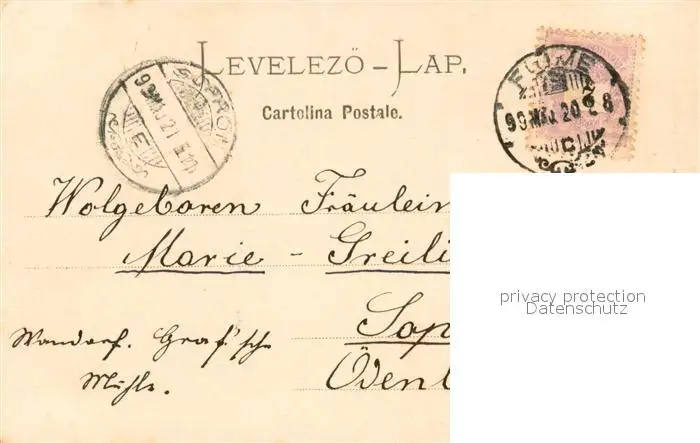 LEVELEZŐ – LAP.
Cartolina Postale.
SOPRON
99 MÁJ. 21
FIUME
99 MÁJ. 20
Wolgeboren Fräulein
Marie – Greili
Sop
Ödenb
Wandorf. Graf'sche
Mühle.
privacy protection
Datenschutz